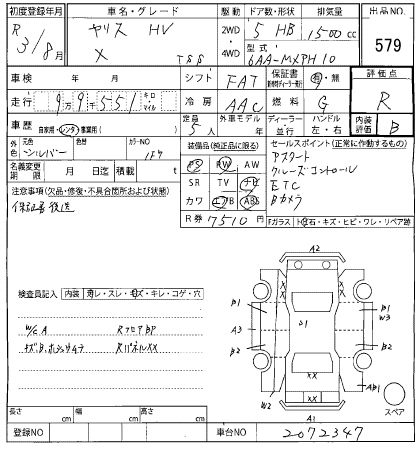 初度登録年月
車名・グレード
駆動
ドア数・形状
排気量
出品NO.
R 3/8月
ヤリス HV
X
2WD
4WD
5 HB
1500cc
型式
6AA-MXPH10
579
車検 年 月
シフト
FAT
保証書
有・無
評価点
走行
9万9千551
キロ
マイル
冷房
AAC
燃料
G
R
車歴
自家用・レンタ・事業用( )
定員
5人
外車モデル
年
ディーラー
並行
ハンドル
左・右
内装
評価
B
外色
元色
シルバー
色替
カラーNO
1F7
装備品(純正品に限る)
セールスポイント(正常に作動するもの)
名義変更
期限
月 日迄
積載
t
PS PW AW
SR TV ナビ
カワ エアB ABS
R券
7510円
アスタート
クルーズコントロール
ETC
Bカメラ
注意事項(欠品・修復・不具合箇所および状態)
保証書後送
Fガラス
石・キズ・ヒビ・ワレ・リペア跡
検査員記入
内装
・スレ・キズ・キレ・コゲ・穴
W/C A
RフロアBP
RパネルXX
A2
B1
A3
B2
21
B1
W3
B2
XX
XX
W2
A1
AB1
スペア
長さ cm
幅 cm
高さ cm
登録NO
車台NO
2072347